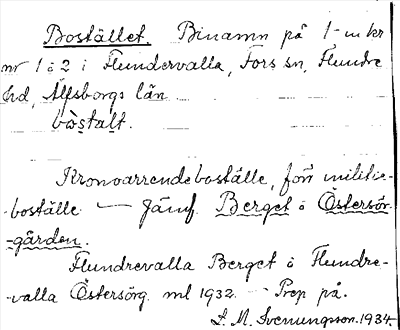 Bostället. Binamn på 1 m kr
nr 1 o 2 i Flundervalla, Fors sn, Flundre
hd, Älfsborgs län.
bòstalt.
Kronoarrendeboställe, förr militie-
-boställe — Jämf. Berget o Östersör-
-gården.
Flundrevalla Berget o Flundre-
-valla Östersörg. ml 1932. – Prep på.
L. M. Svenungsson. 1934.